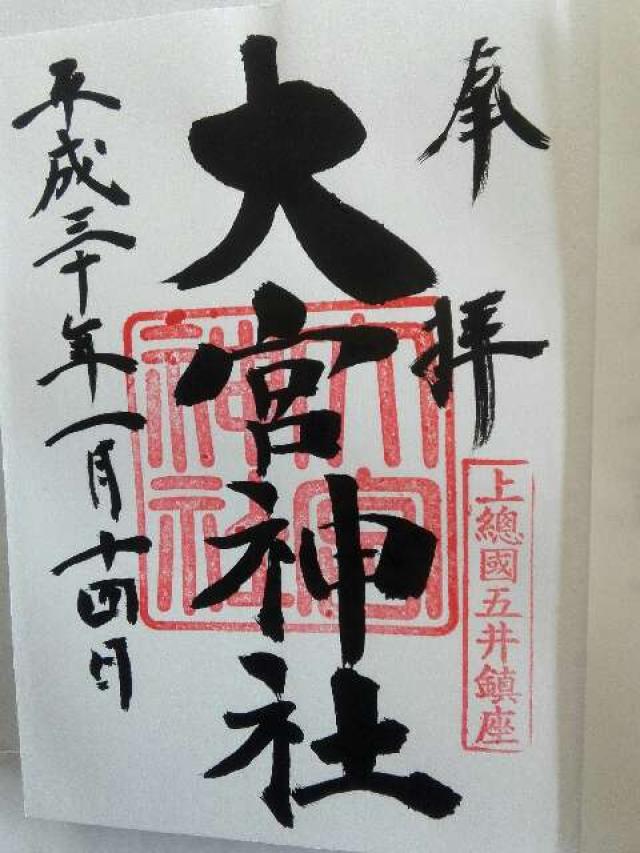 奉拝
上總國五井鎮座
大宮神社
大宮神社
平成三十年一月十四日